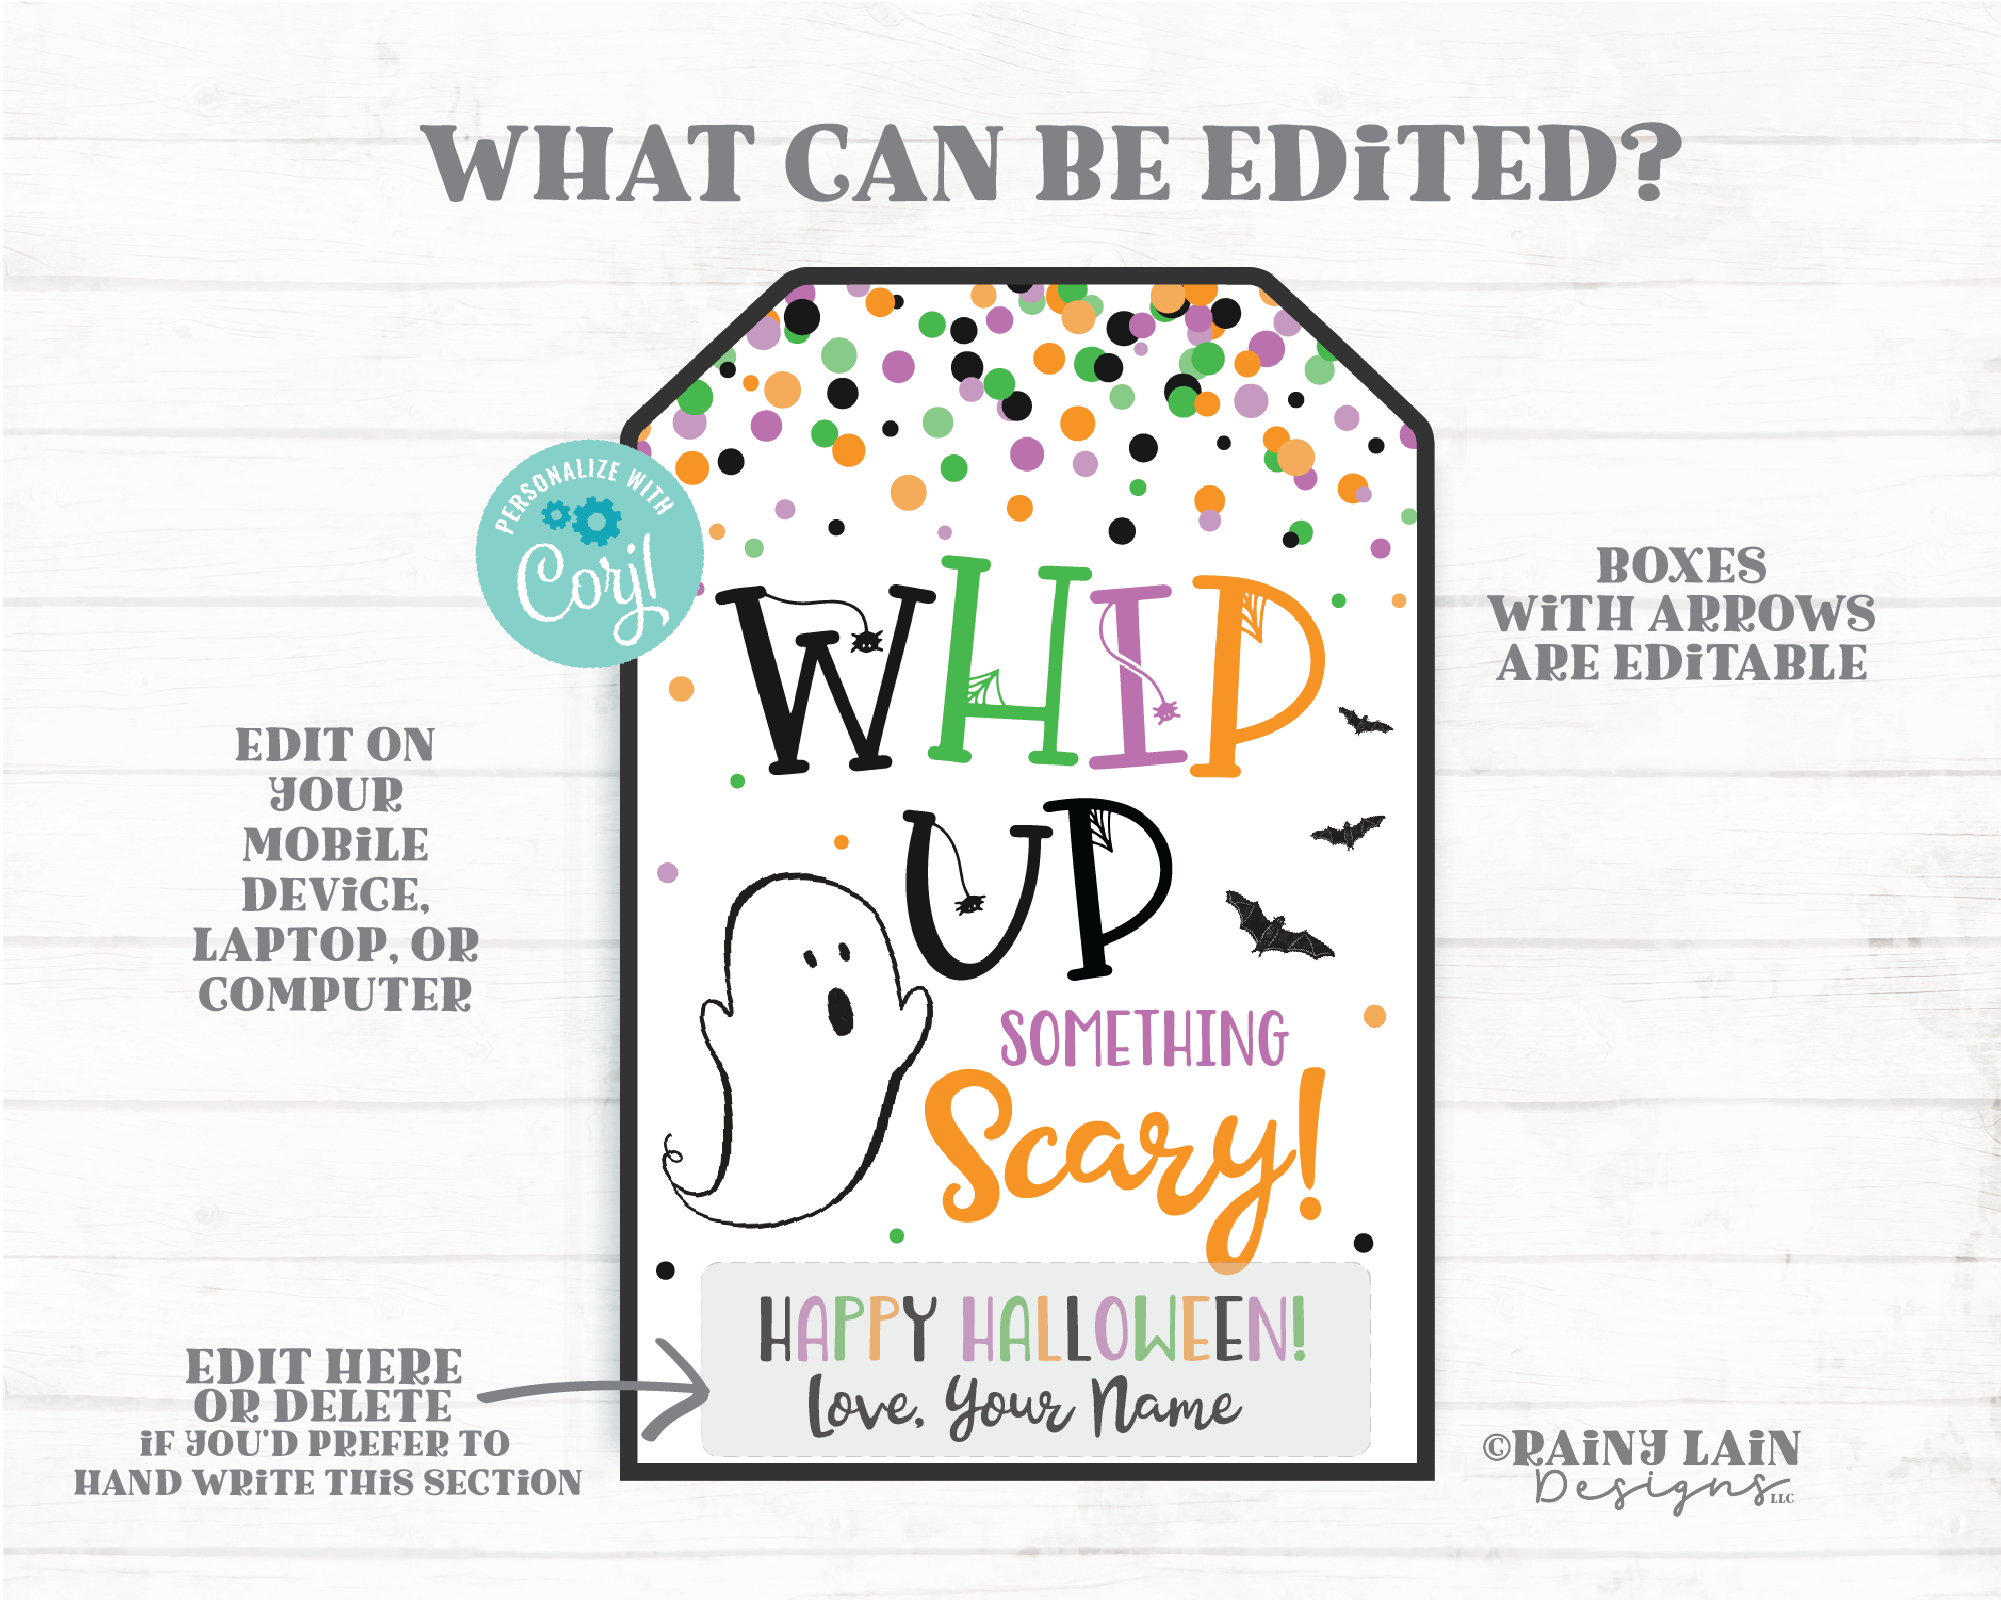 WHAT CAN BE EDiTED?
PERSONALIZE WITH
Corjl
WHIP
UP
SOMETHING
Scary!
HAPPY HALLOWEEN!
Love, Your Name
BOXES
WiTH ARROWS
ARE EDiTABLE
EDIT ON
YOUR
MOBiLE
DEViCE,
LAPTOP, OR
COMPUTER
EDIT HERE
OR DELETE
iF YOU'D PREFER TO
HAND WRiTE THiS SECTiON
©RAiNY LAiN
Designs LLC